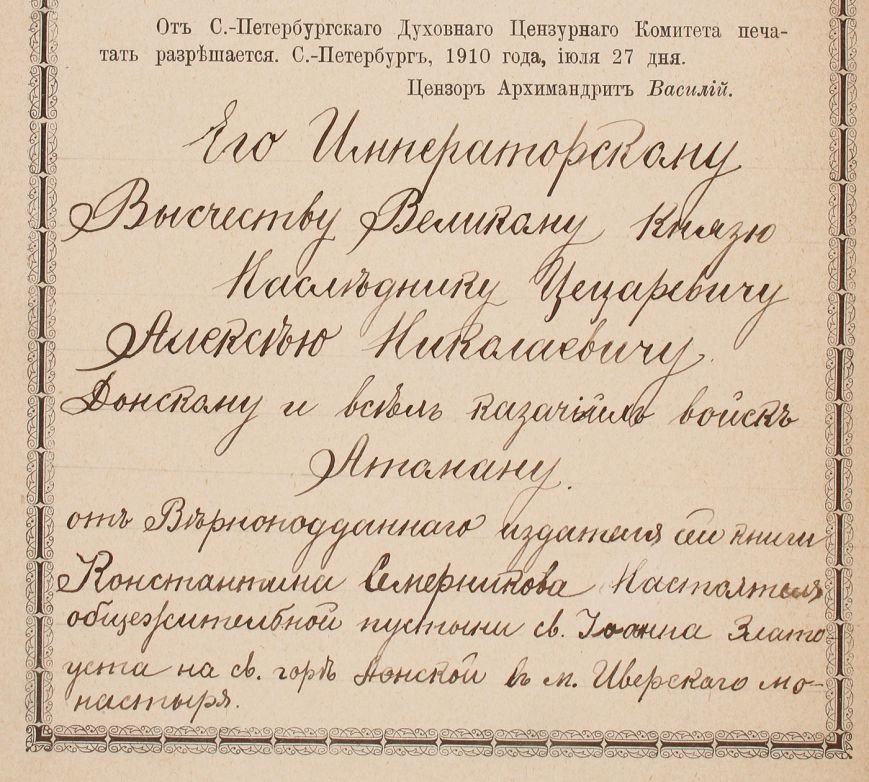 Отъ С.-Петербургскаго Духовнаго Цензурнаго Комитета печа-
тать разрѣшается. С.-Петербургъ, 1910 года, іюля 27 дня.
Цензоръ Архимандритъ Василій.
Его Императорскому
Высчеству Великому Князю
Наслѣднику Цецаревичу
Алексѣю Николаевичу
Донскому и всѣмъ казачіимъ войскъ
Атаману.
отъ Вѣрноподданнаго издателя сей книги
Константина Семерникова Настоятеля
общежителбной пустыни св. Іоанна Злато
уста на св. горѣ Аѳонской въ м. Иверскаго мо-
настыря.